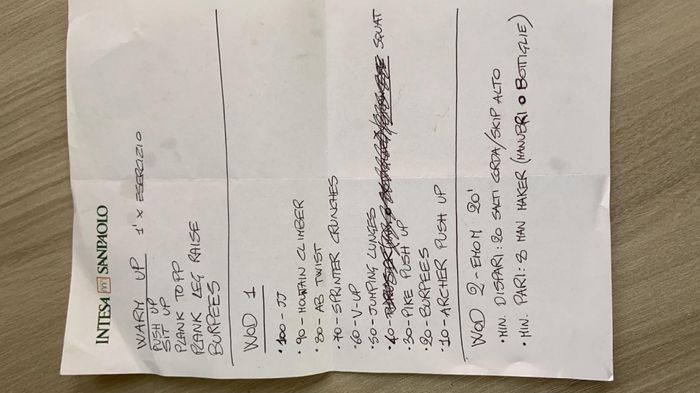 INTESA SANPAOLO
WARM UP 1' x ESERCIZIO
PUSH UP
SIT UP
PLANK TO PP
PLANK LEG RAISE
BURPEES
WOD 1
• 100 - JJ
• 90 - MOUNTAIN CLIMBER
• 80 - AB TWIST
• 70 - SPRINTER CRUNCHES
• 60 - V-UP
• 50 - JUMPING LUNGES
• 40 - SQUAT
• 30 - PIKE PUSH UP
• 20 - BURPEES
• 10 - ARCHER PUSH UP
WOD 2 - EMOM 20'
• MIN. DISPARI: 20 SALTI CORDA/SKIP ALTO
• MIN. PARI: 3 MAN MAKER (MANUBRI O BOTTIGLIE)